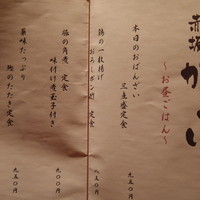 赤坂
〜お昼ごはん〜
本日のおばんざい
三点盛定食
九五〇円
鶏の一枚揚げ
おろしポン酢 定食
八五〇円
豚の角煮 定食
味付け煮玉子付き
九〇〇円
薬味たっぷり
鰹のたたき定食
九五〇円